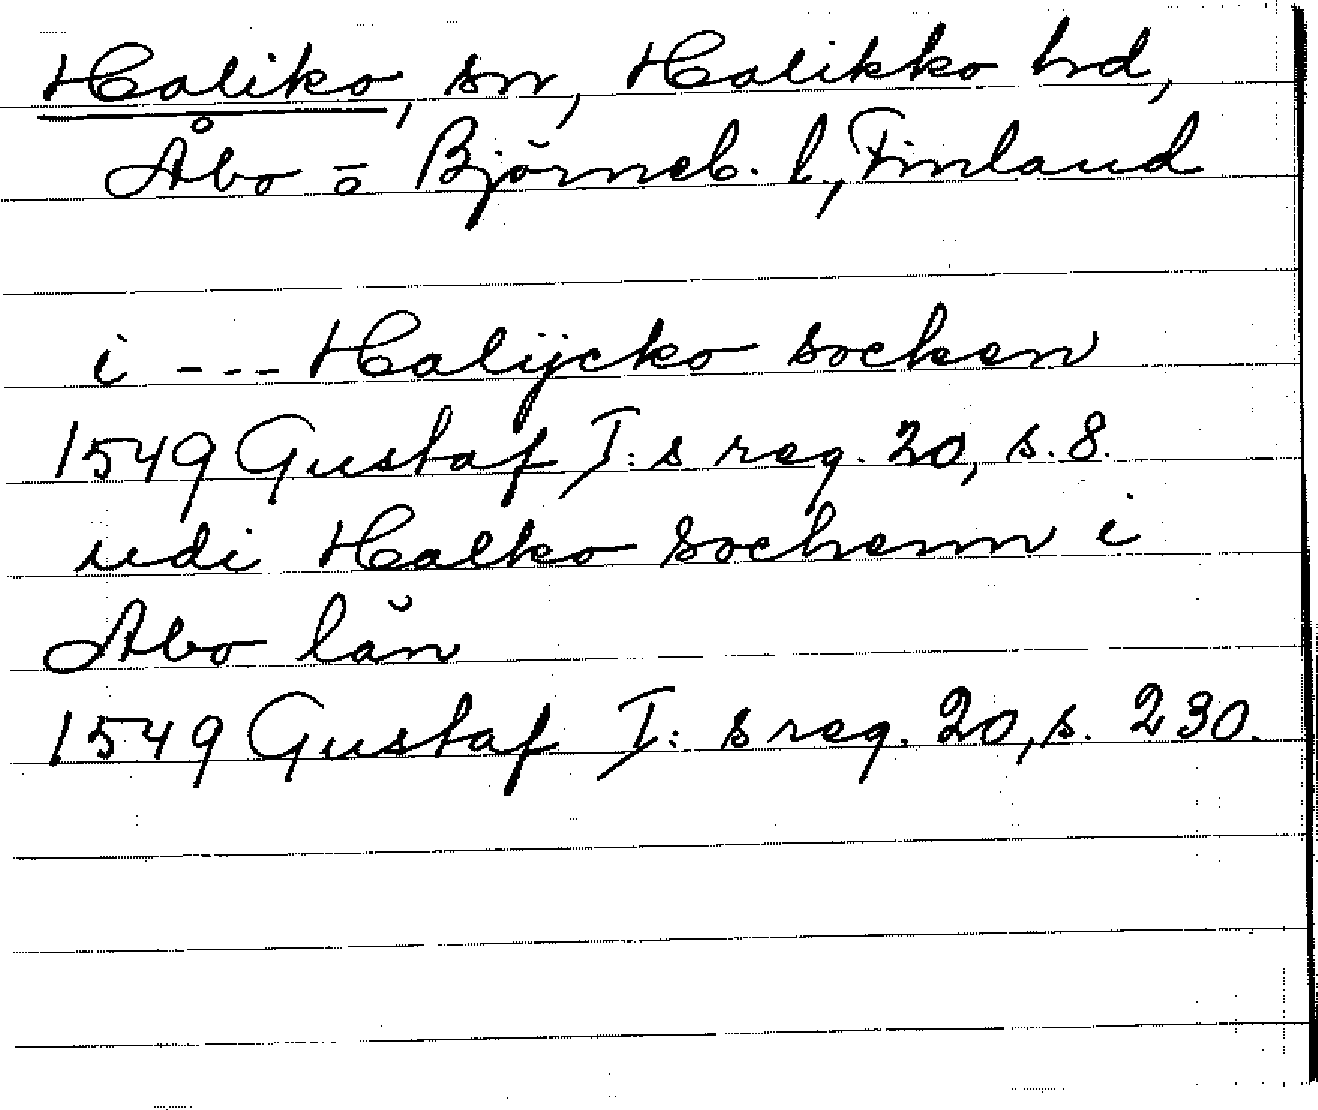 Haliko, sn, Halikko hd,
Åbo o Björneb. l, Finland
i --- Halijcko socken
1549 Gustaf I:s reg. 20, s. 8.
udi Halko sochenn i
Abo län
1549 Gustaf I:s reg. 20, s. 230.